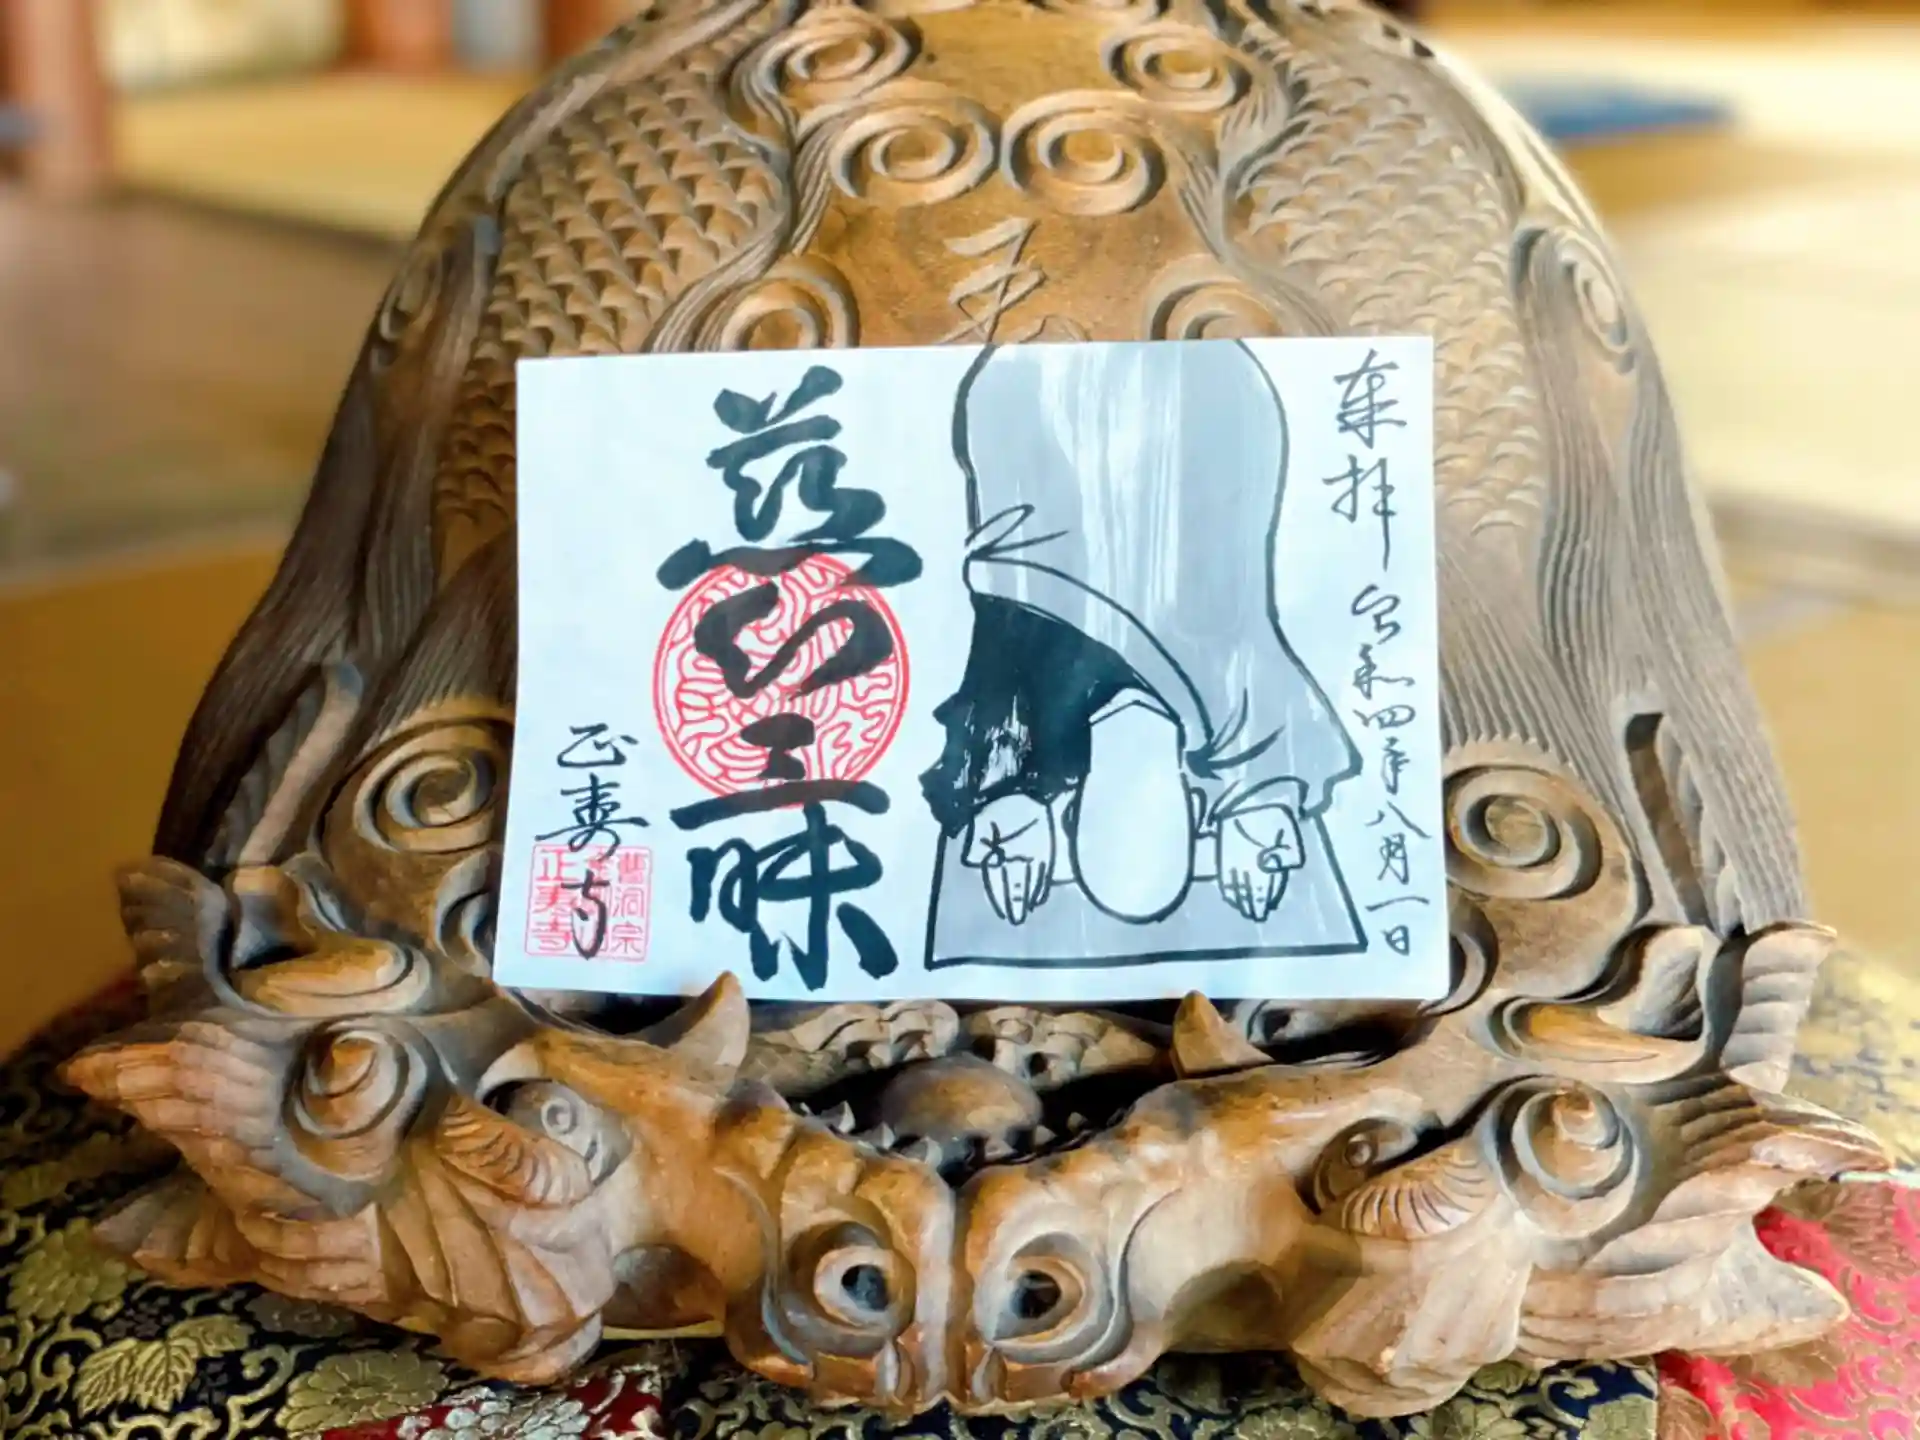 奉拝
令和四年八月一日
慈心三昧
正寿寺
曹洞宗
正寿寺